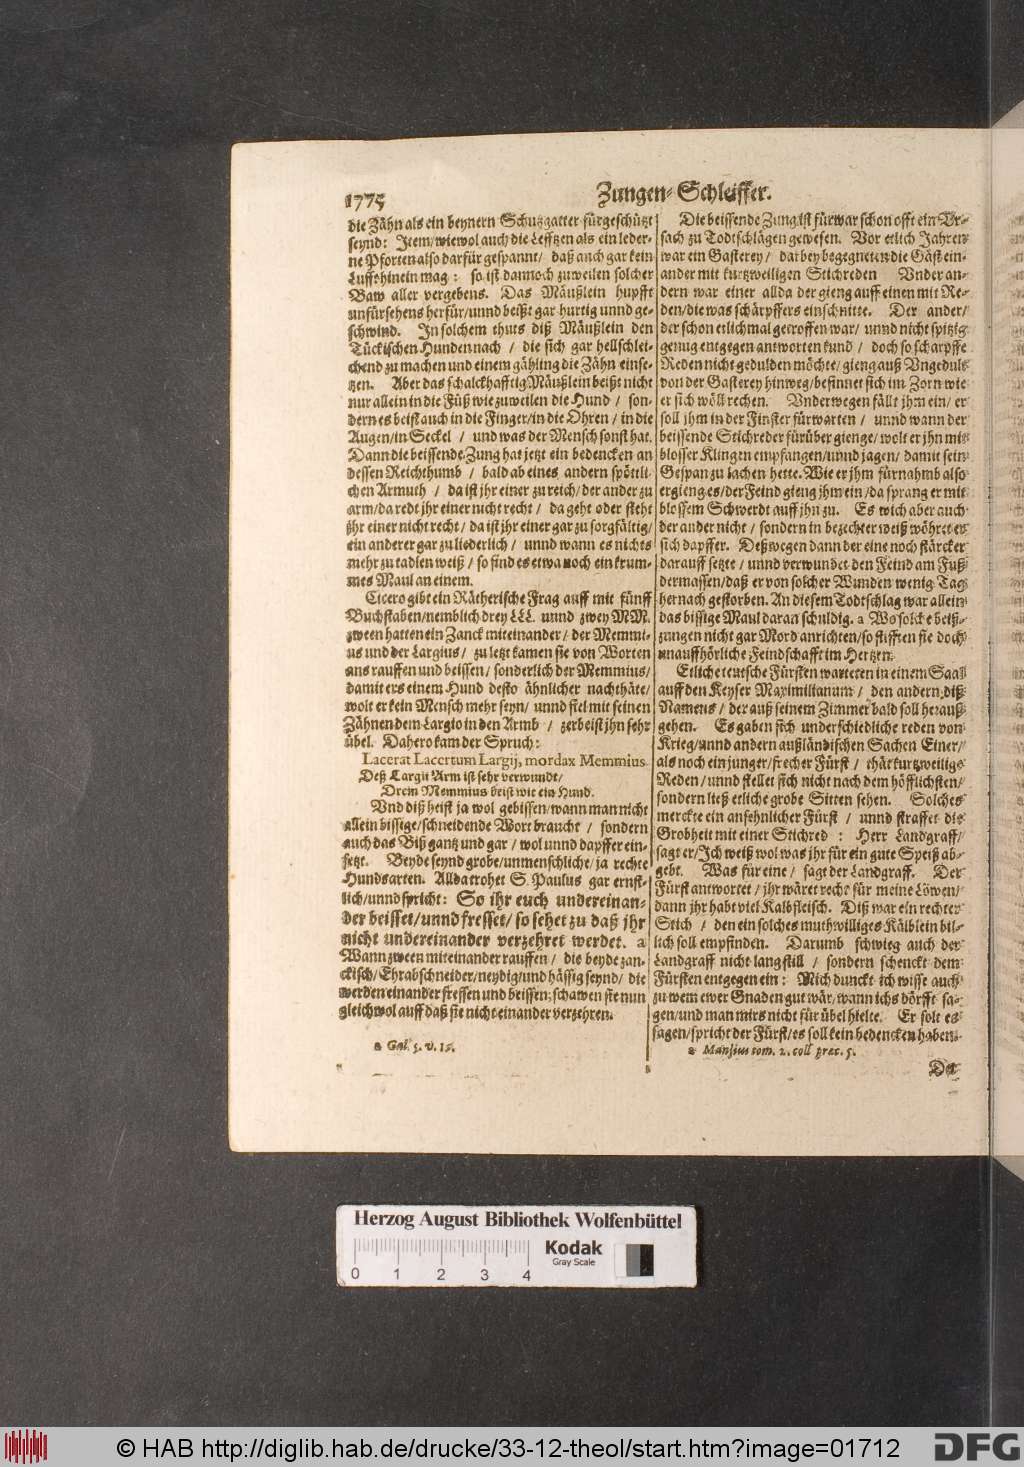 1775
Zungen-Schleiffer.
die Zähn als ein beynern Schutzgatter fürgeschützt
seynd: Item/ wiewol auch die Lefftzen als ein leder-
ne Pforten also darfür gespannt/ daß auch gar kein
Lufft hinein mag: so ist dannoch zuweilen solcher
Baw aller vergebens. Das Mäußlein hupfft
unfürsehens herfür/ unnd beißt gar hurtig unnd ge-
schwind. In solchem thuts diß Mäußlein den
Tückischen Hunden nach / die sich gar hellschlei-
chend zu machen und einem gähling die Zähn einse-
tzen. Aber das schalckhafftig Mäußlein beißt nicht
nur allein in die Füß wie zuweilen die Hund / son-
dern es beist auch in die Finger/ in die Ohren / in die
Augen/ in Seckel / und was der Mensch sonst hat.
Dann die beissende Zung hat jetzt ein bedencken an
dessen Reichthumb / bald ab eines andern spöttli-
chen Armuth / da ist jhr einer zu reich/ der ander zu
arm/ da redt jhr einer nicht recht / da geht oder steht
jhr einer nicht recht/ da ist jhr einer gar zu sorgfältig/
ein anderer gar zu liederlich / unnd wann es nichts
mehr zu tadlen weiß / so find es etwa noch ein krum-
mes Maul an einem.
Cicero gibt ein Rätherische Frag auff mit fünff
Buchstaben/ nemblich drey LLL. unnd zwey MM.
zween hatten ein Zanck miteinander/ der Memmi-
us und der Largius/ zu letzt kamen sie von Worten
ans rauffen und beissen/ sonderlich der Memmius/
damit ers einem Hund desto ähnlicher nachthäte/
wolt er kein Mensch mehr seyn/ unnd fiel mit seinen
Zähnen dem Largio in den Armb / zerbeist jhn sehr
übel. Dahero kam der Spruch:
Lacerat Lacertum Largij, mordax Memmius.
Deß Largii Arm ist sehr verwundt/
Drein Memmius beist wie ein Hund.
Und diß heist ja wol gebissen/ wann man nicht
allein bissige/ schneidende Wort braucht / sondern
auch das Biß gantz und gar / wol unnd dapffer ein-
setzt. Beyde seynd grobe/ unmenschliche/ ja rechte
Hundsarten. Allda trohet S. Paulus gar ernst-
lich/ unnd spricht: So ihr euch undereinan-
der beisset/ unnd fresset/ so sehet zu daß jhr
nicht undereinander verzehret werdet. a
Wann zween miteinander rauffen / die beyde zan-
ckisch/ Ehrabschneider/ neydig/ und hässig seynd/ die
werden einander fressen und beissen; schawen sie nun
gleichwol auff daß sie nicht einander verzehren.
a Gal. 5. v. 15.
Die beissende Zung ist fürwar schon offt ein Ur-
sach zu Todtschlägen gewesen. Vor etlich Jahren
war ein Gasterey/ darbey begegneten die Gäst ein-
ander mit kurtzweiligen Stichreden Under an-
dern war einer allda der gieng auff einen mit Re-
den/ die was schärpffers einschnitte. Der ander/
der schon etlichmal getroffen war/ unnd nicht spitzig
genug entgegen antworten kund / doch so scharpffe
Reden nicht gedulden möchte/ gieng auß Ungedult
von der Gasterey hinweg/ besinnet sich im Zorn wie
er sich wöll rechen. Underwegen fällt jhm ein/ er
soll jhm in der Finster fürwarten / unnd wann der
beissende Stichreder fürüber gienge/ wolt er jhn mit
blosser Klingen empfangen/ unnd jagen/ damit sein
Gespan zu lachen hette. Wie er jhm fürnahmb also
ergieng es/ der Feind gieng jhm ein/ da sprang er mit
blossem Schwerdt auff jhn zu. Es wich aber auch
der ander nicht / sondern in bezechter weiß wöhret er
sich dapffer. Deßwegen dann der eine noch stärcker
darauff setzte/ unnd verwundet den Feind am Fuß
dermassen/ daß er von solcher Wunden wenig Tag
hernach gestorben. An diesem Todtschlag war allein
das bissige Maul daran schuldig. a Wo solche beiß-
zungen nicht gar Mord anrichten/ so stifften sie doch
unauffhörliche Feindschafft im Hertzen.
Etliche teutsche Fürsten warteten in einem Saal
auff den Keyser Maximilianum / den andern diß
Namens / der auß seinem Zimmer bald soll herauß
gehen. Es gaben sich underschiedliche reden von
Krieg/ unnd andern außländischen Sachen Einer/
als noch ein junger/ frecher Fürst / thät kurtzweilige
Reden/ unnd stellet sich nicht nach dem höfflichsten/
sondern ließ etliche grobe Sitten sehen. Solches
merckte ein ansehnlicher Fürst / unnd straffet die
Grobheit mit einer Stichred : Herr Landgraff/
sagt er/ Ich weiß wol was jhr für ein gute Speiß ab-
gebt. Was für eine / sagt der Landgraff. Der
Fürst antwortet / jhr wäret recht für meine Löwen/
dann jhr habt viel Kalbfleisch. Diß war ein rechter
Stich / den ein solches muthwilliges Kälblein bil-
lich soll empfinden. Darumb schwieg auch der
Landgraff nicht lang still / sondern schenckt dem
Fürsten entgegen ein: Mich dunckt ich wisse auch
zu wem ewer Gnaden gut wär/ wann ichs dörfft sa-
gen/ und man mirs nicht für übel hielte. Er solt es
sagen/ spricht der Fürst/ es soll kein bedencken haben.
a Mansius tom. 2. coll. prac. 5.
Der
Herzog August Bibliothek Wolfenbüttel
0 1 2 3 4
Kodak
Gray Scale
© HAB http://diglib.hab.de/drucke/33-12-theol/start.htm?image=01712
DFG